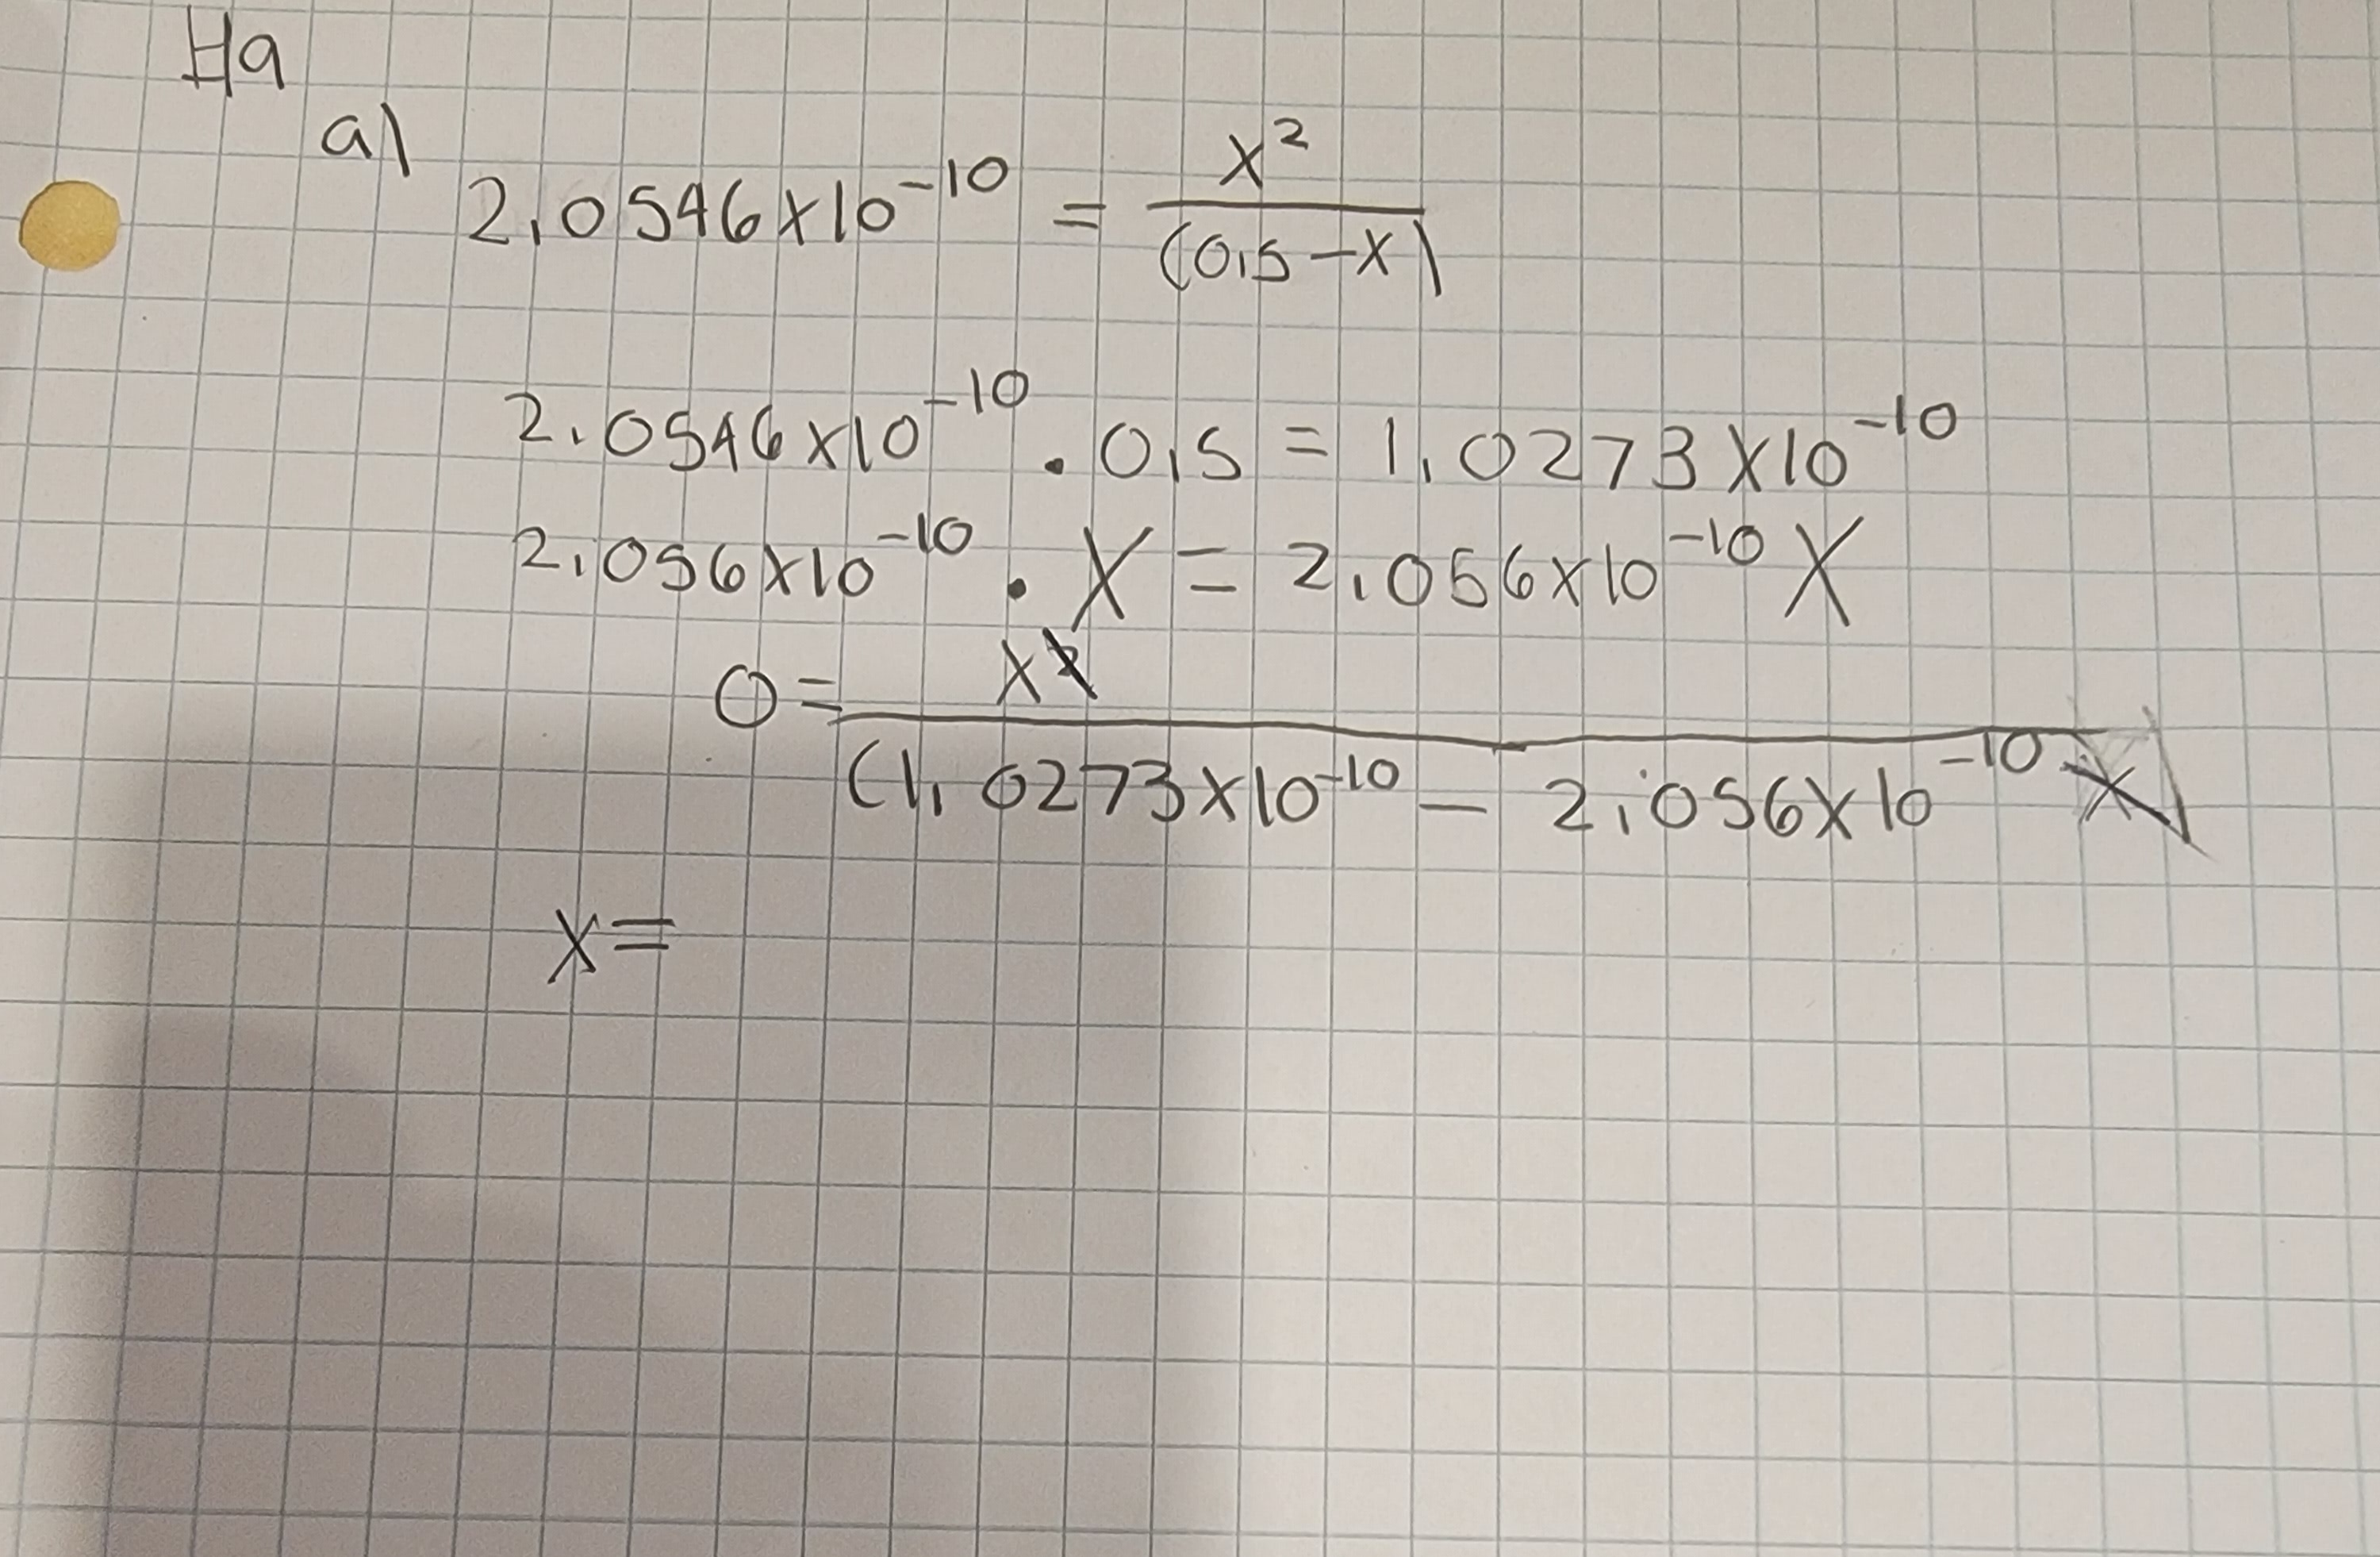 Ha
a)
2,0546x10^-10 = x^2/(0,5-x)
2,0546x10^-10 · 0,5 = 1,0273x10^-10
2,056x10^-10 · X = 2,056x10^-10 X
0 = x/(1,0273x10^-10 - 2,056x10^-10)
x=